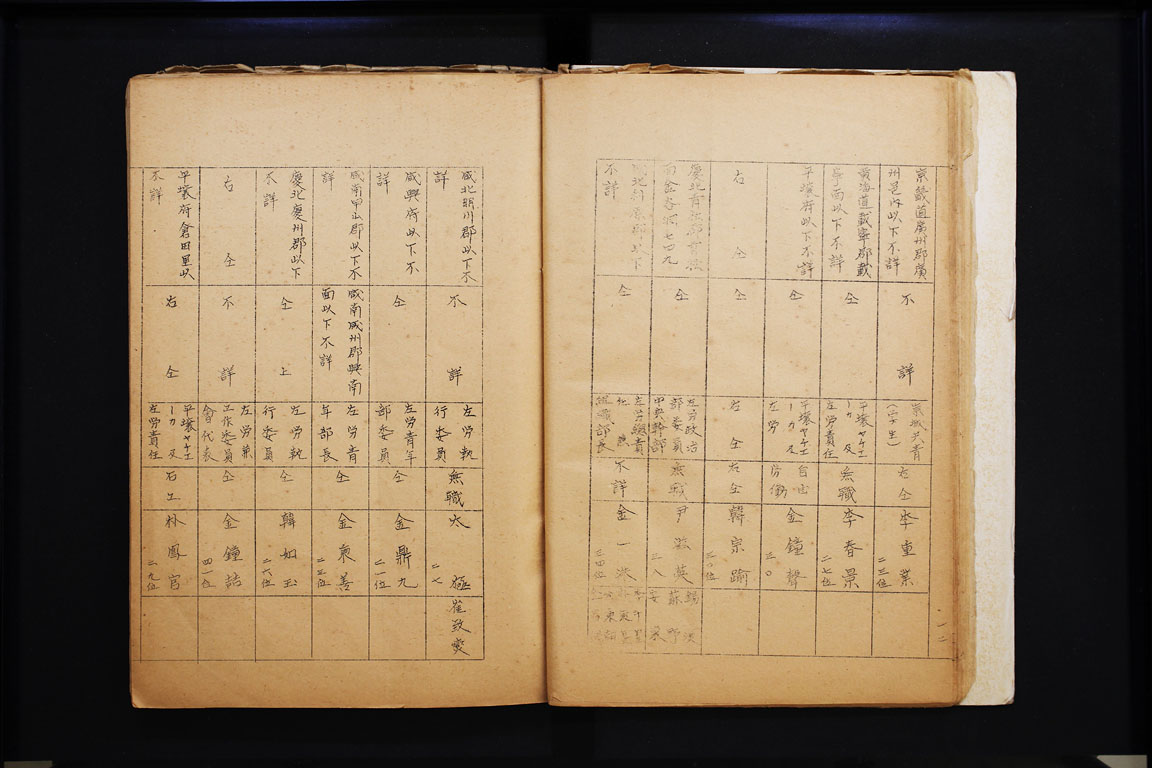 京畿道廣州郡廣
州邑内以下不詳
不詳
(学生)
右仝
李重業
二三位
黄海道載寧郡載
寧面以下不詳
仝
平壌ヤチエ
ーカ及
左労責任
無職
李春景
二七位
平壌府以下不詳
仝
平壌ヤチエ
ーカ及
左労
自由
労働
金鐘聲
三〇
右仝
仝
右仝
右仝
韓宗瑜
三〇位
慶北青松郡
七四九
仝
左労政治
部委員
中央幹部
無職
尹英
二八
不詳
仝
左労總責
組織部長
不詳
金一洙
三四位
一二
咸北明川郡以下不
詳
不詳
左労執
行委員
無職
太極
二七
崔致爕
咸興府以下不
詳
仝
左労青年
部委員
仝
金鼎九
二一位
咸南甲山郡以下不
詳
咸南咸州郡興南
面以下不詳
左労青
年部長
仝
金秉善
二三位
慶北慶州郡以下
不詳
仝上
左労執
行委員
仝
韓如玉
二六位
右仝
不詳
左労兼
工作委員
会代表
仝
金鐘詰
四一位
平壌府倉田里以
不詳
右仝
平壌ヤチエ
ーカ及
左労責任
石工
朴鳳官
二九位